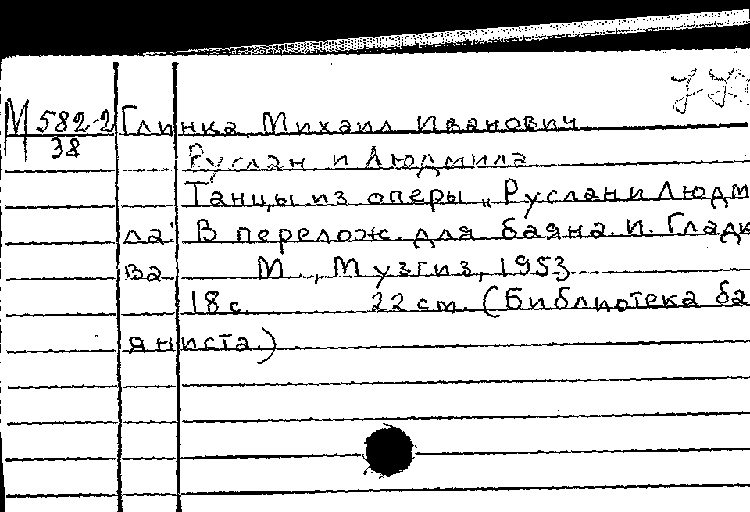 М 582-2 Глинка, Михаил Иванович
38
Руслан и Людмила
Танцы из оперы "Руслан и Людм
ла" В перелож. для баяна И. Гладк
ва М., Музгиз, 1953
18 с. 22 см. (Библиотека ба
яниста.)